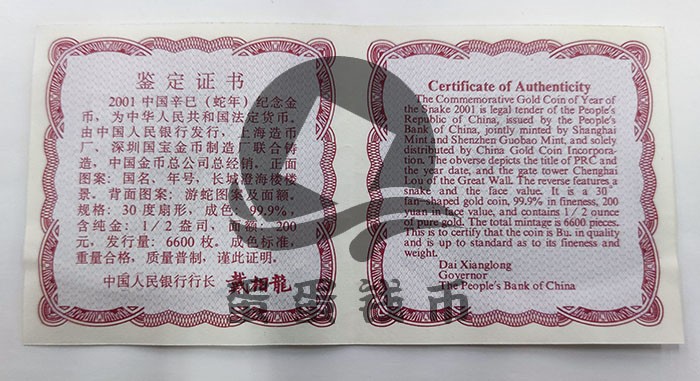 鉴定证书
2001中国辛巳（蛇年）纪念金
币，为中华人民共和国法定货币。
由中国人民银行发行，上海造币
厂、深圳国宝金币制造厂联合铸
造，中国金币总公司总经销。正面
图案：国名、年号，长城澄海楼楼
景。背面图案：游蛇图案及面额。
规格：30度扇形，成色：99.9%，
含纯金：1／2盎司，面额：200
元，发行量：6600枚。成色标准，
重量合格，质量普制，谨此证明。
中国人民银行行长 戴相龍
Certificate of Authenticity
The Commemorative Gold Coin of Year of
the Snake 2001 is legal tender of the People's
Republic of China, issued by the People's
Bank of China, jointly minted by Shanghai
Mint and Shenzhen Guobao Mint, and solely
distributed by China Gold Coin Incorpora-
tion. The obverse depicts the title of PRC and
the year date, and the gate tower Chenghai
Lou of the Great Wall. The reverse features a
snake and the face value. It is a 30°
fan-shaped gold coin, 99.9% in fineness, 200
yuan in face value, and contains 1/2 ounce
of pure gold. The total mintage is 6600 pieces.
This is to certify that the coin is Bu. in quality
and is up to standard as to its fineness and
weight.
Dai Xianglong
Governor
The People's Bank of China